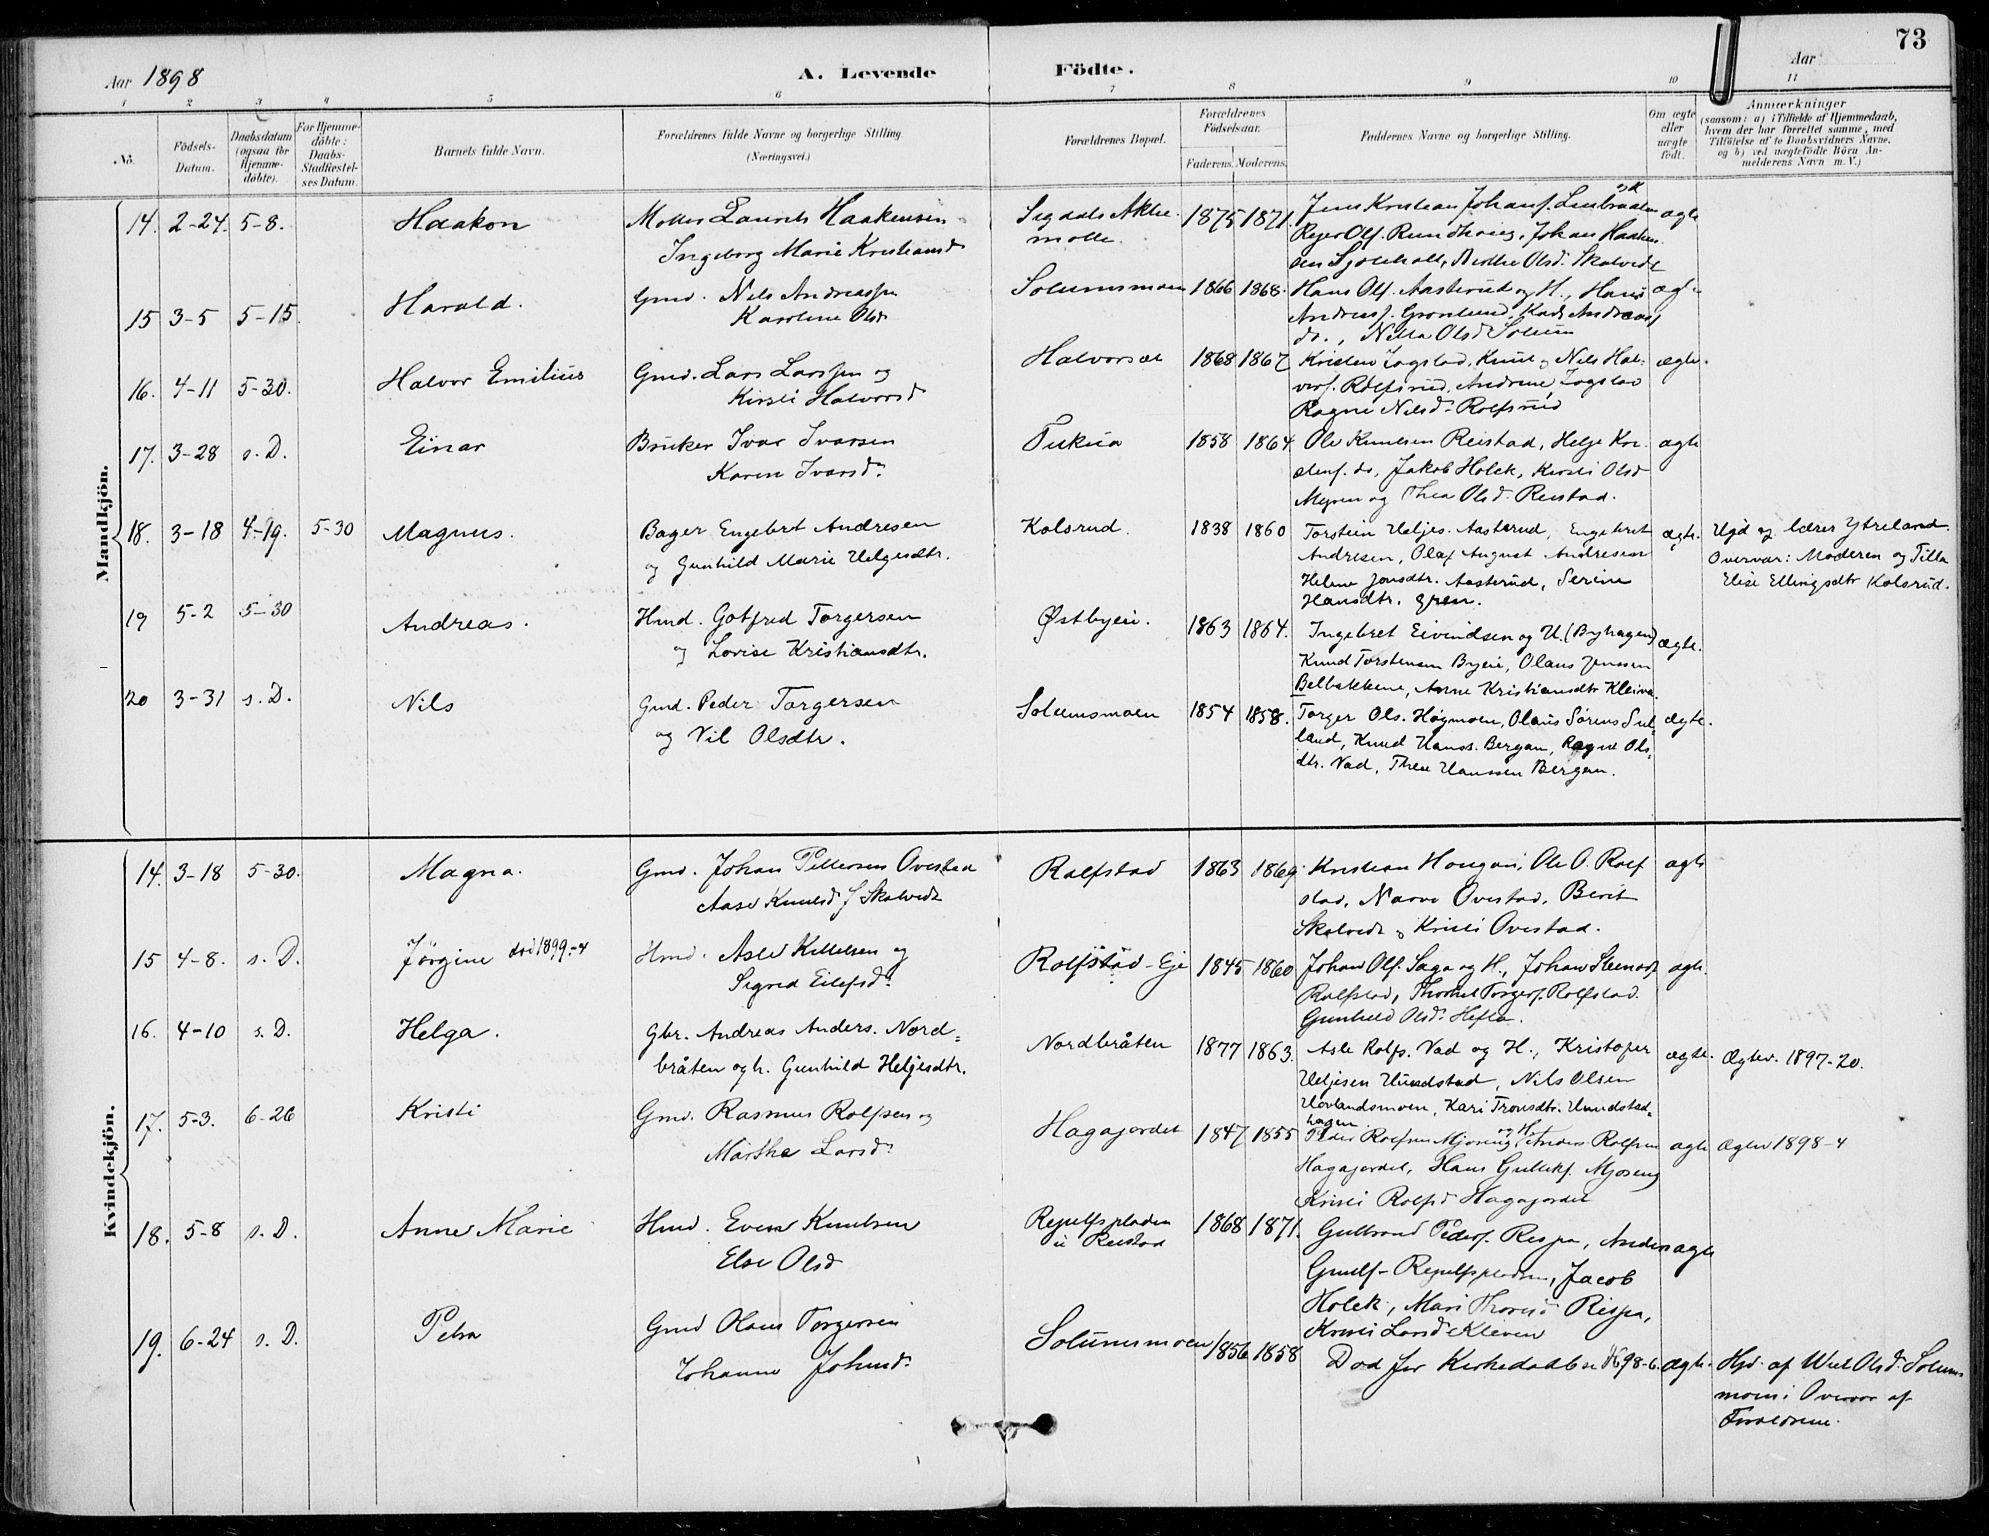 73
Aar 1898 A. Levende Födte. Aar
1 2 3 4 5 6 7 8 9 10 11
No.
Födsels-Datum.
Daabsdatum (ogsaa for Hjemme-döbte).
For Hjemme-döbte: Daabs-Stadfæstel-ses Datum.
Barnets fulde Navn.
Forældrenes fulde Navne og borgerlige Stilling. (Næringsvei.)
Forældrenes Bopæl.
Forældrenes Födselsaar. Faderens. Moderens.
Faddernes Navne og borgerlige Stilling.
Om ægte eller uægte födt.
Anmærkninger
(saasom: a) i Tilfælde af Hjemmedaab, hvem der har forrettet samme, med Tilföielse af to Daabsvidners Navne, og b) ved uægtefödte Börn An-melderens Navn m. V.)
Mandkjön.
14. 2-24. 5-8. Haakon
Laurits Haakensen
Ingeborg Marie Kristiansd
Sigdals Aktie-
mølle. 1875 1871.
Jens Kristian Johansf.
Olf. Rundhaug, Johan Haaken
sen Olsd. Skalvedt
ægte
15 3-5 5-15. Harald.
Gmd. Nils Andreassen
Karoline Olsd
Solumsmoen 1866 1868.
Hans Olf. Aasterud og H., Hans
Andreasf. Grønlund, Andreas
do., Olsd Solum
ægt.
16. 4-11 5-30. Halvor Emilius
Gmd. Lars Larssen og
Kirsti Halvorsd
1868 1867
Kristen Knut og Nils Hal-
vorsf. Rolfsrud, Andrine
Ragne Nilsd. Rolfsrud
ægte.
17. 3-28 s. D. Einar
Bruker Ivar Ivarsen
Karen Ivarsd.
1858 1864
Ole Knutsen Reistad, Helge Kri-
stenf. do, Jakob Holck, Kirsti Olsd
Myren og Thea Olsd. Reistad.
ægte
18. 3-18 4-19. 5-30 Magnus.
Bager Engebret Andresen
og Gunhild Marie Helgesdtr.
Kolsrud. 1838 1860
Torstein Helges. Aasterud, Engebret
Andresen, Olaf August Andresen
Helene Jonsdtr. Aasterud, Serine
Hansdtr. Gren.
ægte.
Hgd af lærer Ytreland.
Overvar: Moderen og Tilla
Elise Ellingsdtr Kolsrud.
19 5-2 5-30 Andreas.
Hmd. Gotfred Torgersen
og Lovise Kristiansdtr.
Østbyeie. 1863 1864.
Ingebret Eivindsen og H. (Byhagen)
Knud Torstensen Byeie, Olaus Jenssen
Belbakkene, Anne Kristiansdtr Kleiva.
ægte.
20 3-31 s. D. Nils
Gmd. Peder Torgersen
og Vil Olsdtr.
Solumsmoen 1854 1858.
Torger Ols. Høgmoen, Olaus Sørens Sol-
land, Knud Hanss. Bergan, Ragne Ols-
dtr. Vad, Thea Hanssen Bergan.
ægte.
Kvindekjön.
14. 3-18 5-30. Magna.
Gmd. Johan Pettersen Ovestad
Aase Knutsd f Skalvedt
Rolfstad 1863 1869.
Kristian Hougan, Ole O. Rolf
stad, Narve Ovestad, Berit
Skalvedt og Kristi Ovestad.
ægte
15 4-8. s. D. Jørgine død 1899-4
Hmd. Asle Kittelsen og
Sigrid Eilefsd.
Rolfstad-Eje 1845 1860
Johan Olf. Saga og H., Johan
Rolfstad, Torgerf. Rolfstad.
Gunhild Olsd. Hefta.
ægte.
16. 4-10 s. D. Helga.
Gbr. Andreas Anders. Nord=
bråten og h. Gunhild Helgesdtr.
Nordbråten 1877 1863.
Asle Rolfs. Vad og H., Kristofer
Helgesen Hundstad, Nils Olsen
Hovlandsmoen, Kari Tronsdtr. Hundstad-
hagen
ægte. Ægtev. 1897-20.
17. 5-3. 6-26 Kristi
Gmd. Rasmus Rolfsen og
Marthe Larsd.
Hagajordet 1847 1855
Peder Rolfsen Mjøseng og H., Anders Rolfsen
Hagajordet, Hans Gullekf. Mjøseng
Kristi Rolfsd Hagajordet
ægte Ægtev 1898-4
18. 5-8 s. D. Anne Marie
Hmd. Even Knutsen
Else Olsd
Regulfspladsen
u Reistad 1868 1871.
Gulbrand Pedersf. Rispa, Anders
Gunulf- Regulfspladsen, Jacob
Holck, Mari Thorsd Rispa,
Kristi Larsd Kleven
ægte
19. 6-24 s. D. Petra
Gmd Olaus Torgersen
Johanne Johnsd.
Solumsmoen 1856 1858
Død før Kirkedaaben 98-6.
ægte.
Hjd. af Olsd. Solums
moen: Overvar af
Forældrene.